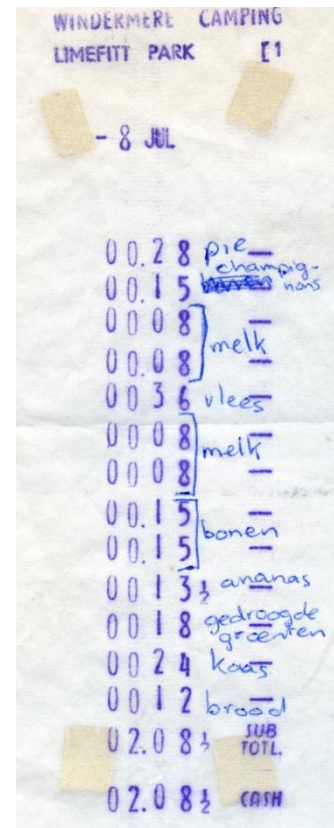 WINDERMERE CAMPING
LIMEFITT PARK [1
- 8 JUL
00.28 pie —
champig-
00.15 — nons
00 08 —
melk
00.08 —
00 36 vlees —
00 08 —
melk
00 08 —
00.15 —
bonen
00.15 —
00 13½ ananas
00 18 gedroogde —
groenten
00 24 kaas —
00 12 brood —
02.08½ SUB TOTL.
02.08½ CASH